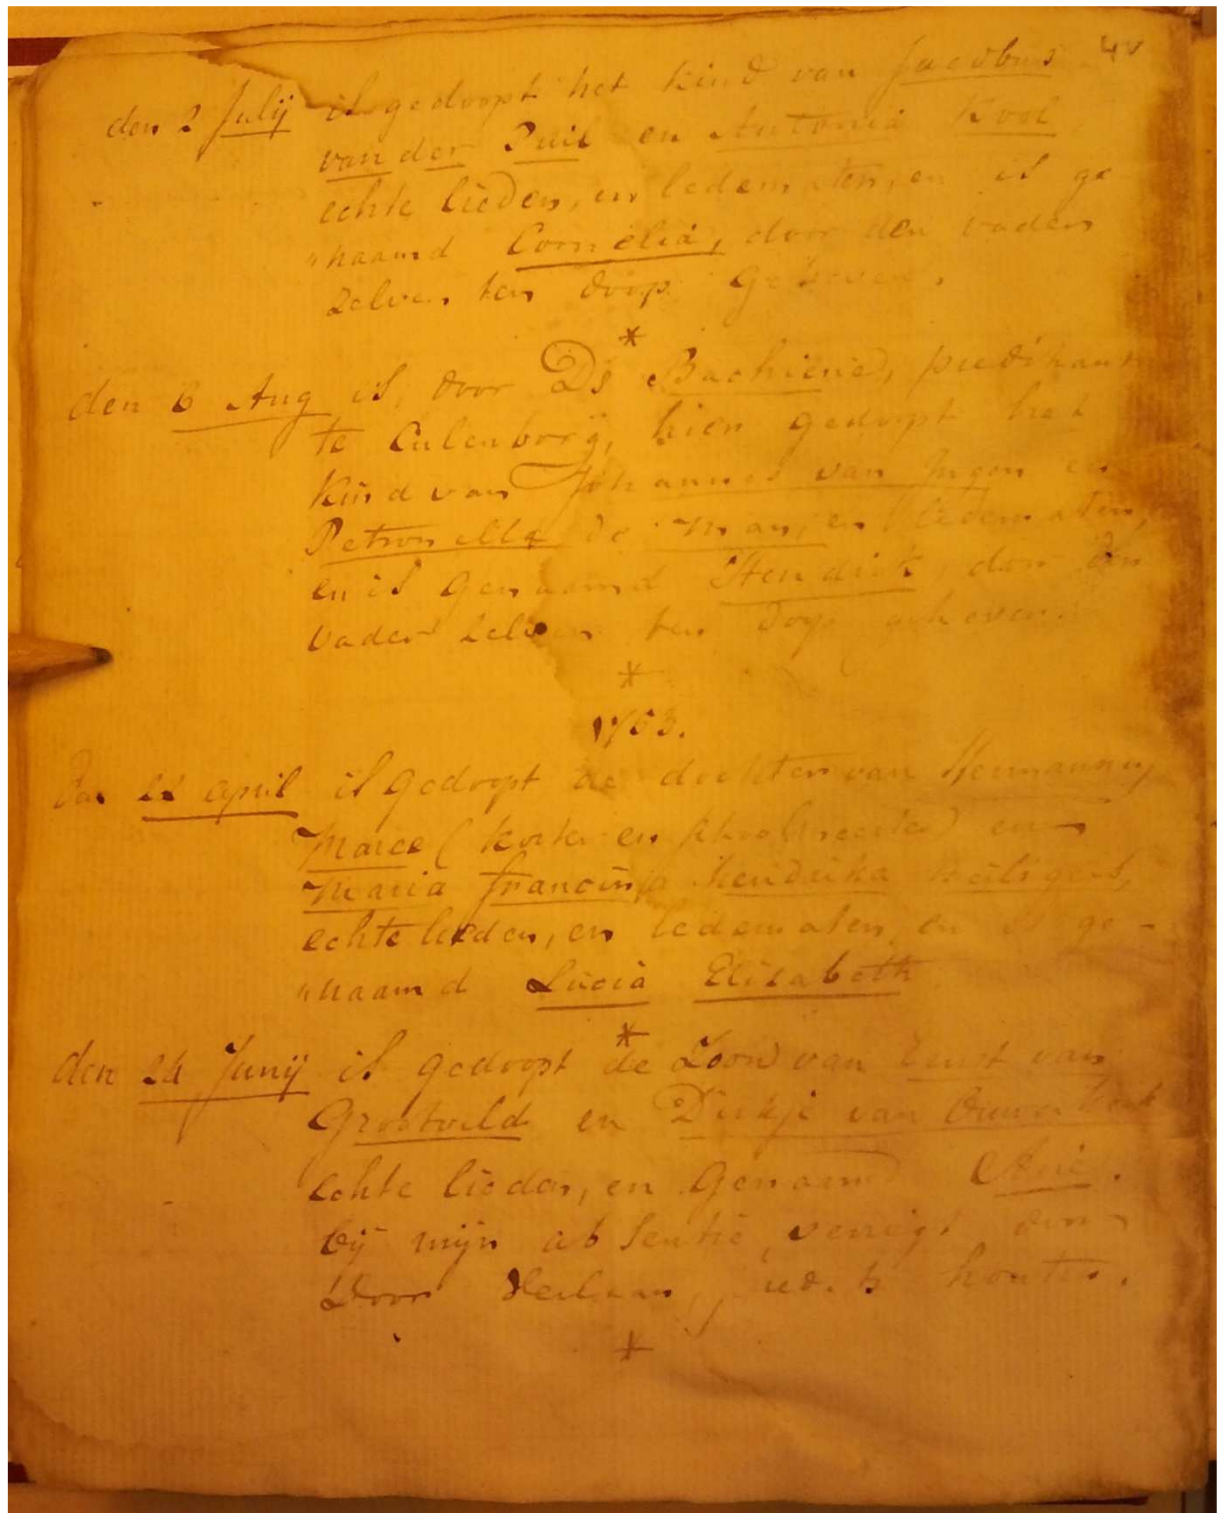 40
den 2 Julij is gedoopt het kind van Jacobus
van der Puil en Antonia Kool
echte lieden, en ledematen, en is ge
"naamd Cornelia, door den vader
zelven ten doop geheven.
*
den 6 Aug is, door Ds Bachiene, predikant
te Culenborg, hier gedoopt het
kind van Johannes van Ingen en
Petronella de Man, en ledematen,
en is genaamd Hendrik, door den
vader zelven ten doop geheven.
*
1763.
den 22 april is gedoopt de dochter van Hermannus
Marce (koster en schoolmeester) en
Maria Francina Hendrika
echte lieden, en ledematen en is ge-
"naamd Lucia Elisabeth
*
den 24 Junij is gedoopt de Zoon van Ernst van
Grootveld en Dirkje van Ouwerkerk
echte lieden, en genaamd Arie.
bij mijn absentie, verrigt
Door houten.
*